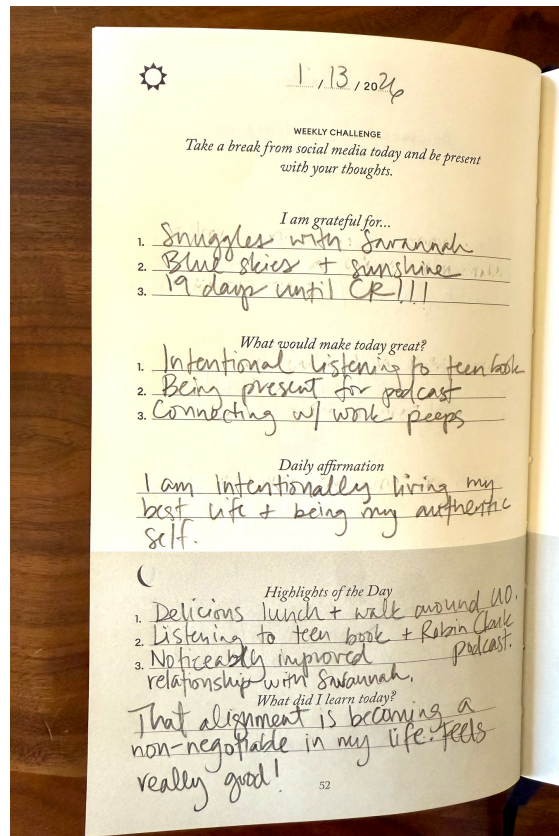 1 / 13 / 2026
WEEKLY CHALLENGE
Take a break from social media today and be present
with your thoughts.
I am grateful for...
1. Snuggles with Savannah
2. Blue skies + sunshine
3. 19 days until CR!!!
What would make today great?
1. Intentional listening to teen book
2. Being present for podcast
3. Connecting w/ work peeps
Daily affirmation
I am intentionally living my
best life + being my authentic
self.
Highlights of the Day
1. Delicious lunch + walk around UO.
2. Listening to teen book + Robin Clark
podcast.
3. Noticeably improved
relationship with Savannah.
What did I learn today?
That alignment is becoming a
non-negotiable in my life. Feels
really good!
52